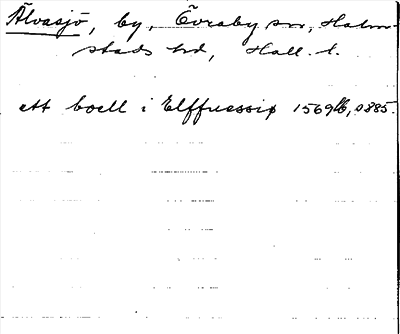 Älvasjö, by, Övraby sn, Halm-
stads hd, Hall. l.
ett boell i Elffuessiø 1569 lb, 0885.